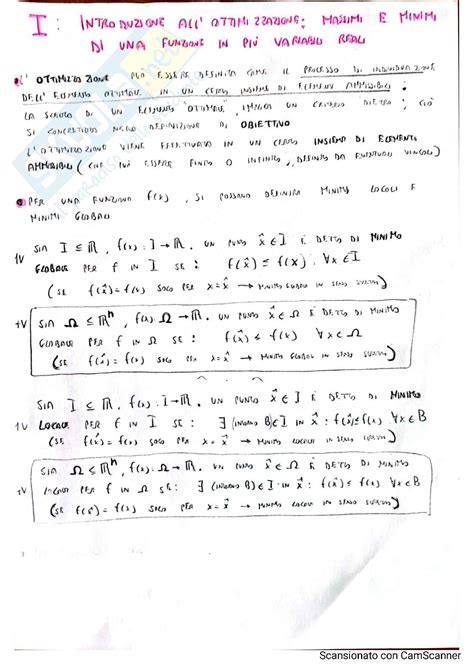 I: INTRODUZIONE ALL'OTTIMIZZAZIONE: MASSIMI E MINIMI
DI UNA FUNZIONE IN PIÙ VARIABILI REALI
L'OTTIMIZZAZIONE PUÒ ESSERE DEFINITA COME IL PROCESSO DI INDIVIDUAZIONE
DELL'ELEMENTO OTTIMALE IN UN CERTO INSIEME DI ELEMENTI AMMISSIBILI:
LA SCELTA DI UN ELEMENTO "OTTIMALE" IMPLICA UN CRITERIO DIETRO; CIÒ
SI CONCRETIZZA NELLA DEFINIZIONE DI OBIETTIVO
L'OTTIMIZZAZIONE VIENE EFFETTUATA IN UN CERTO INSIEME DI ELEMENTI
AMMISSIBILI (CHE PUÒ ESSERE FINITO O INFINITO, DEFINITO DA EVENTUALI VINCOLI)
PER UNA FUNZIONE f(x), SI POSSONO DEFINIRE MINIMI LOCALI E
MINIMI GLOBALI
1V SIA I ⊆ ℝ, f(x): I → ℝ. UN PUNTO x̂ ∈ I È DETTO DI MINIMO
GLOBALE PER f IN I SE: f(x̂) ≤ f(x) ∀x ∈ I
(SE f(x̂) = f(x) SOLO PER x = x̂ → MINIMO GLOBALE IN SENSO STRETTO)
+V SIA Ω ⊆ ℝⁿ, f(x): Ω → ℝ. UN PUNTO x̂ ∈ Ω È DETTO DI MINIMO
GLOBALE PER f IN Ω SE: f(x̂) ≤ f(x) ∀x ∈ Ω
(SE f(x̂) = f(x) SOLO PER x = x̂ → MINIMO GLOBAL IN SENSO STRETTO)
1V SIA I ⊆ ℝ, f(x): I → ℝ. UN PUNTO x̂ ∈ I È DETTO DI MINIMO
LOCALE PER f IN I SE: ∃ (INTORNO B) ∈ I IN x̂ : f(x̂) ≤ f(x) ∀x ∈ B
(SE f(x̂) = f(x) SOLO PER x = x̂ → MINIMO LOCALE IN SENSO STRETTO)
+V SIA Ω ⊆ ℝⁿ, f(x): Ω → ℝ. UN PUNTO x̂ ∈ Ω È DETTO DI MINIMO
LOCALE PER f IN Ω SE: ∃ (INTORNO B) ∈ I IN x̂ : f(x̂) ≤ f(x) ∀x ∈ B
(SE f(x̂) = f(x) SOLO PER x = x̂ → MINIMO LOCALE IN SENSO STRETTO)
Scansionato con CamScanner